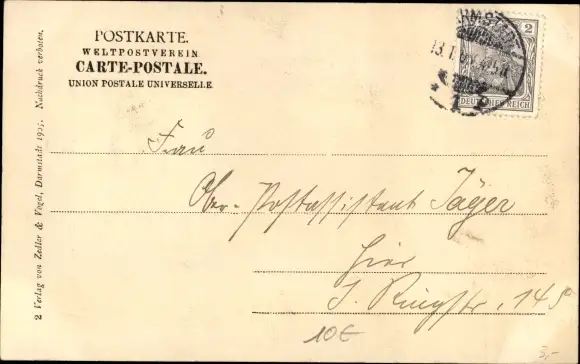 POSTKARTE.
WELTPOSTVEREIN
CARTE-POSTALE.
UNION POSTALE UNIVERSELLE.
2
DEUTSCHES REICH
Frau
Ober-Postassistent Jäger
Hier
148
10€
3,-
2 Verlag von Zedler & Vogel, Darmstadt 1905. Nachdruck verboten.